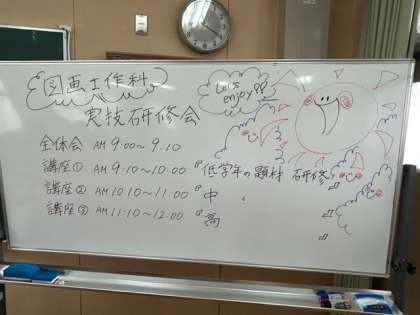 図画工作科
実技研修会
Let's enjoy!!
全体会 AM 9:00〜9:10
講座① AM 9:10〜10:10 『低学年の題材 研修』
講座② AM 10:10〜11:00 『中 〃 』
講座③ AM 11:10〜12:00 『高 』